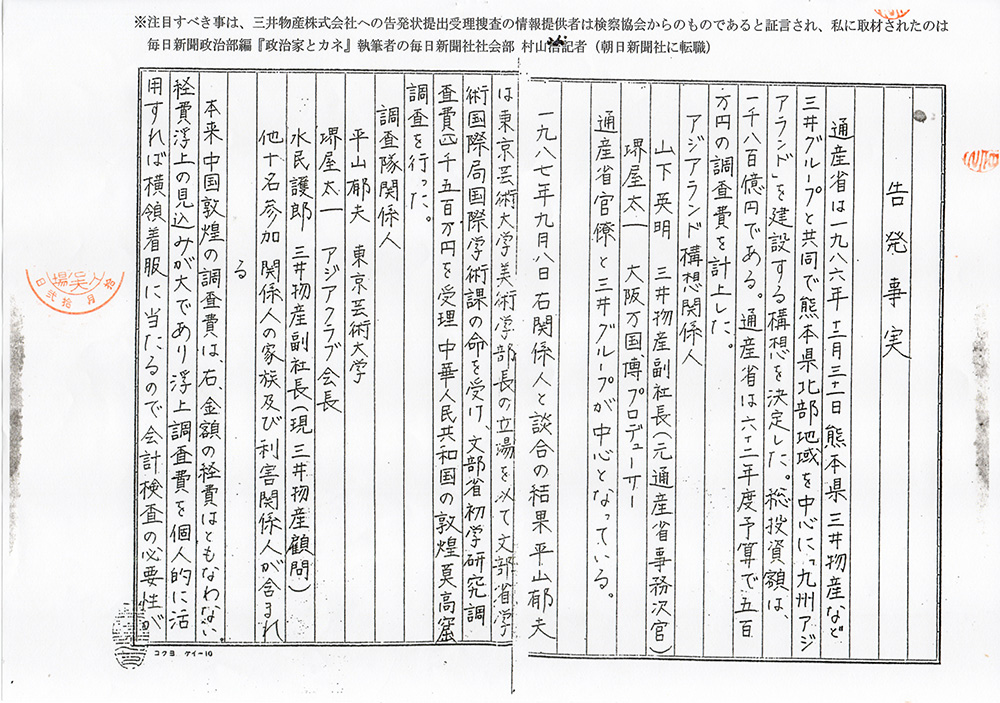 ※注目すべき事は、三井物産株式会社への告発状提出受理捜査の情報提供者は検察協会からのものであると証言され、私に取材されたのは
毎日新聞政治部編『政治家とカネ』執筆者の毎日新聞社社会部 村山治記者（朝日新聞社に転職）
告発事実
通産省は一九八六年十二月三十一日熊本県三井物産など
三井グループと共同で熊本県北部地域を中心に「九州アジ
アランド」を建設する構想を決定した。総投資額は、
一千八百億円である。通産省は六十二年度予算で五百
万円の調査費を計上した。
アジアランド構想関係人
山下英明 三井物産副社長（元通産省事務次官）
堺屋太一 大阪万国博プロデューサー
通産省官僚と三井グループが中心となっている。
一九八七年九月八日右関係人と談合の結果平山郁夫
は東京芸術大学美術学部長の立場を以て文部省学
術国際局国際学術課の命を受け、文部省初学研究調
査費四千五百万円を受理 中華人民共和国の敦煌莫高窟
調査を行った。
調査隊関係人
平山郁夫 東京芸術大学
堺屋太一 アジアクラブ会長
水民護郎 三井物産副社長（現 三井物産顧問）
他十名参加 関係人の家族及び利害関係人が含まれ
る
本来中国敦煌の調査費は、右、金額の経費はともなわない
経費浮上の見込みが大であり浮上調査費を個人的に活
用すれば横領着服に当たるので会計検査の必要性が
コクヨ ケイー10